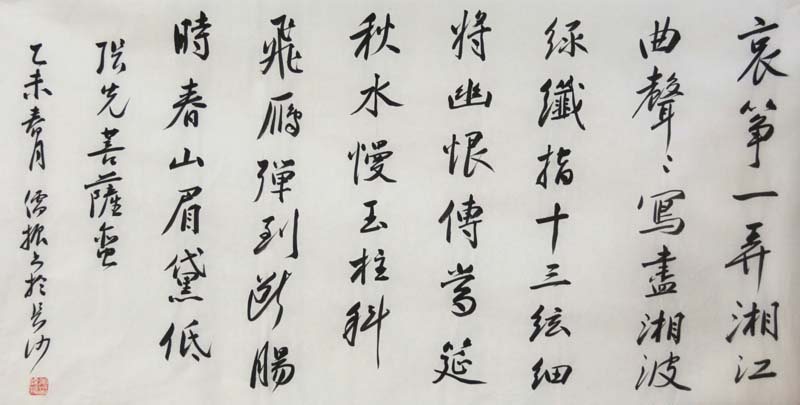 哀箏一弄湘江
曲聲〻寫盡湘波
綠纖指十三絃細
將幽恨傳當筵
秋水慢玉柱斜
飛雁彈到斷腸
時春山眉黛低
張先菩薩蠻
乙未春月儒振書於長沙